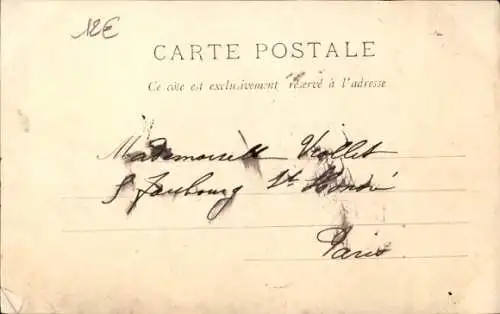 12€
CARTE POSTALE
Ce côté est exclusivement réservé à l'adresse
Mademoiselle Viollet
Faubourg St Honoré
Paris